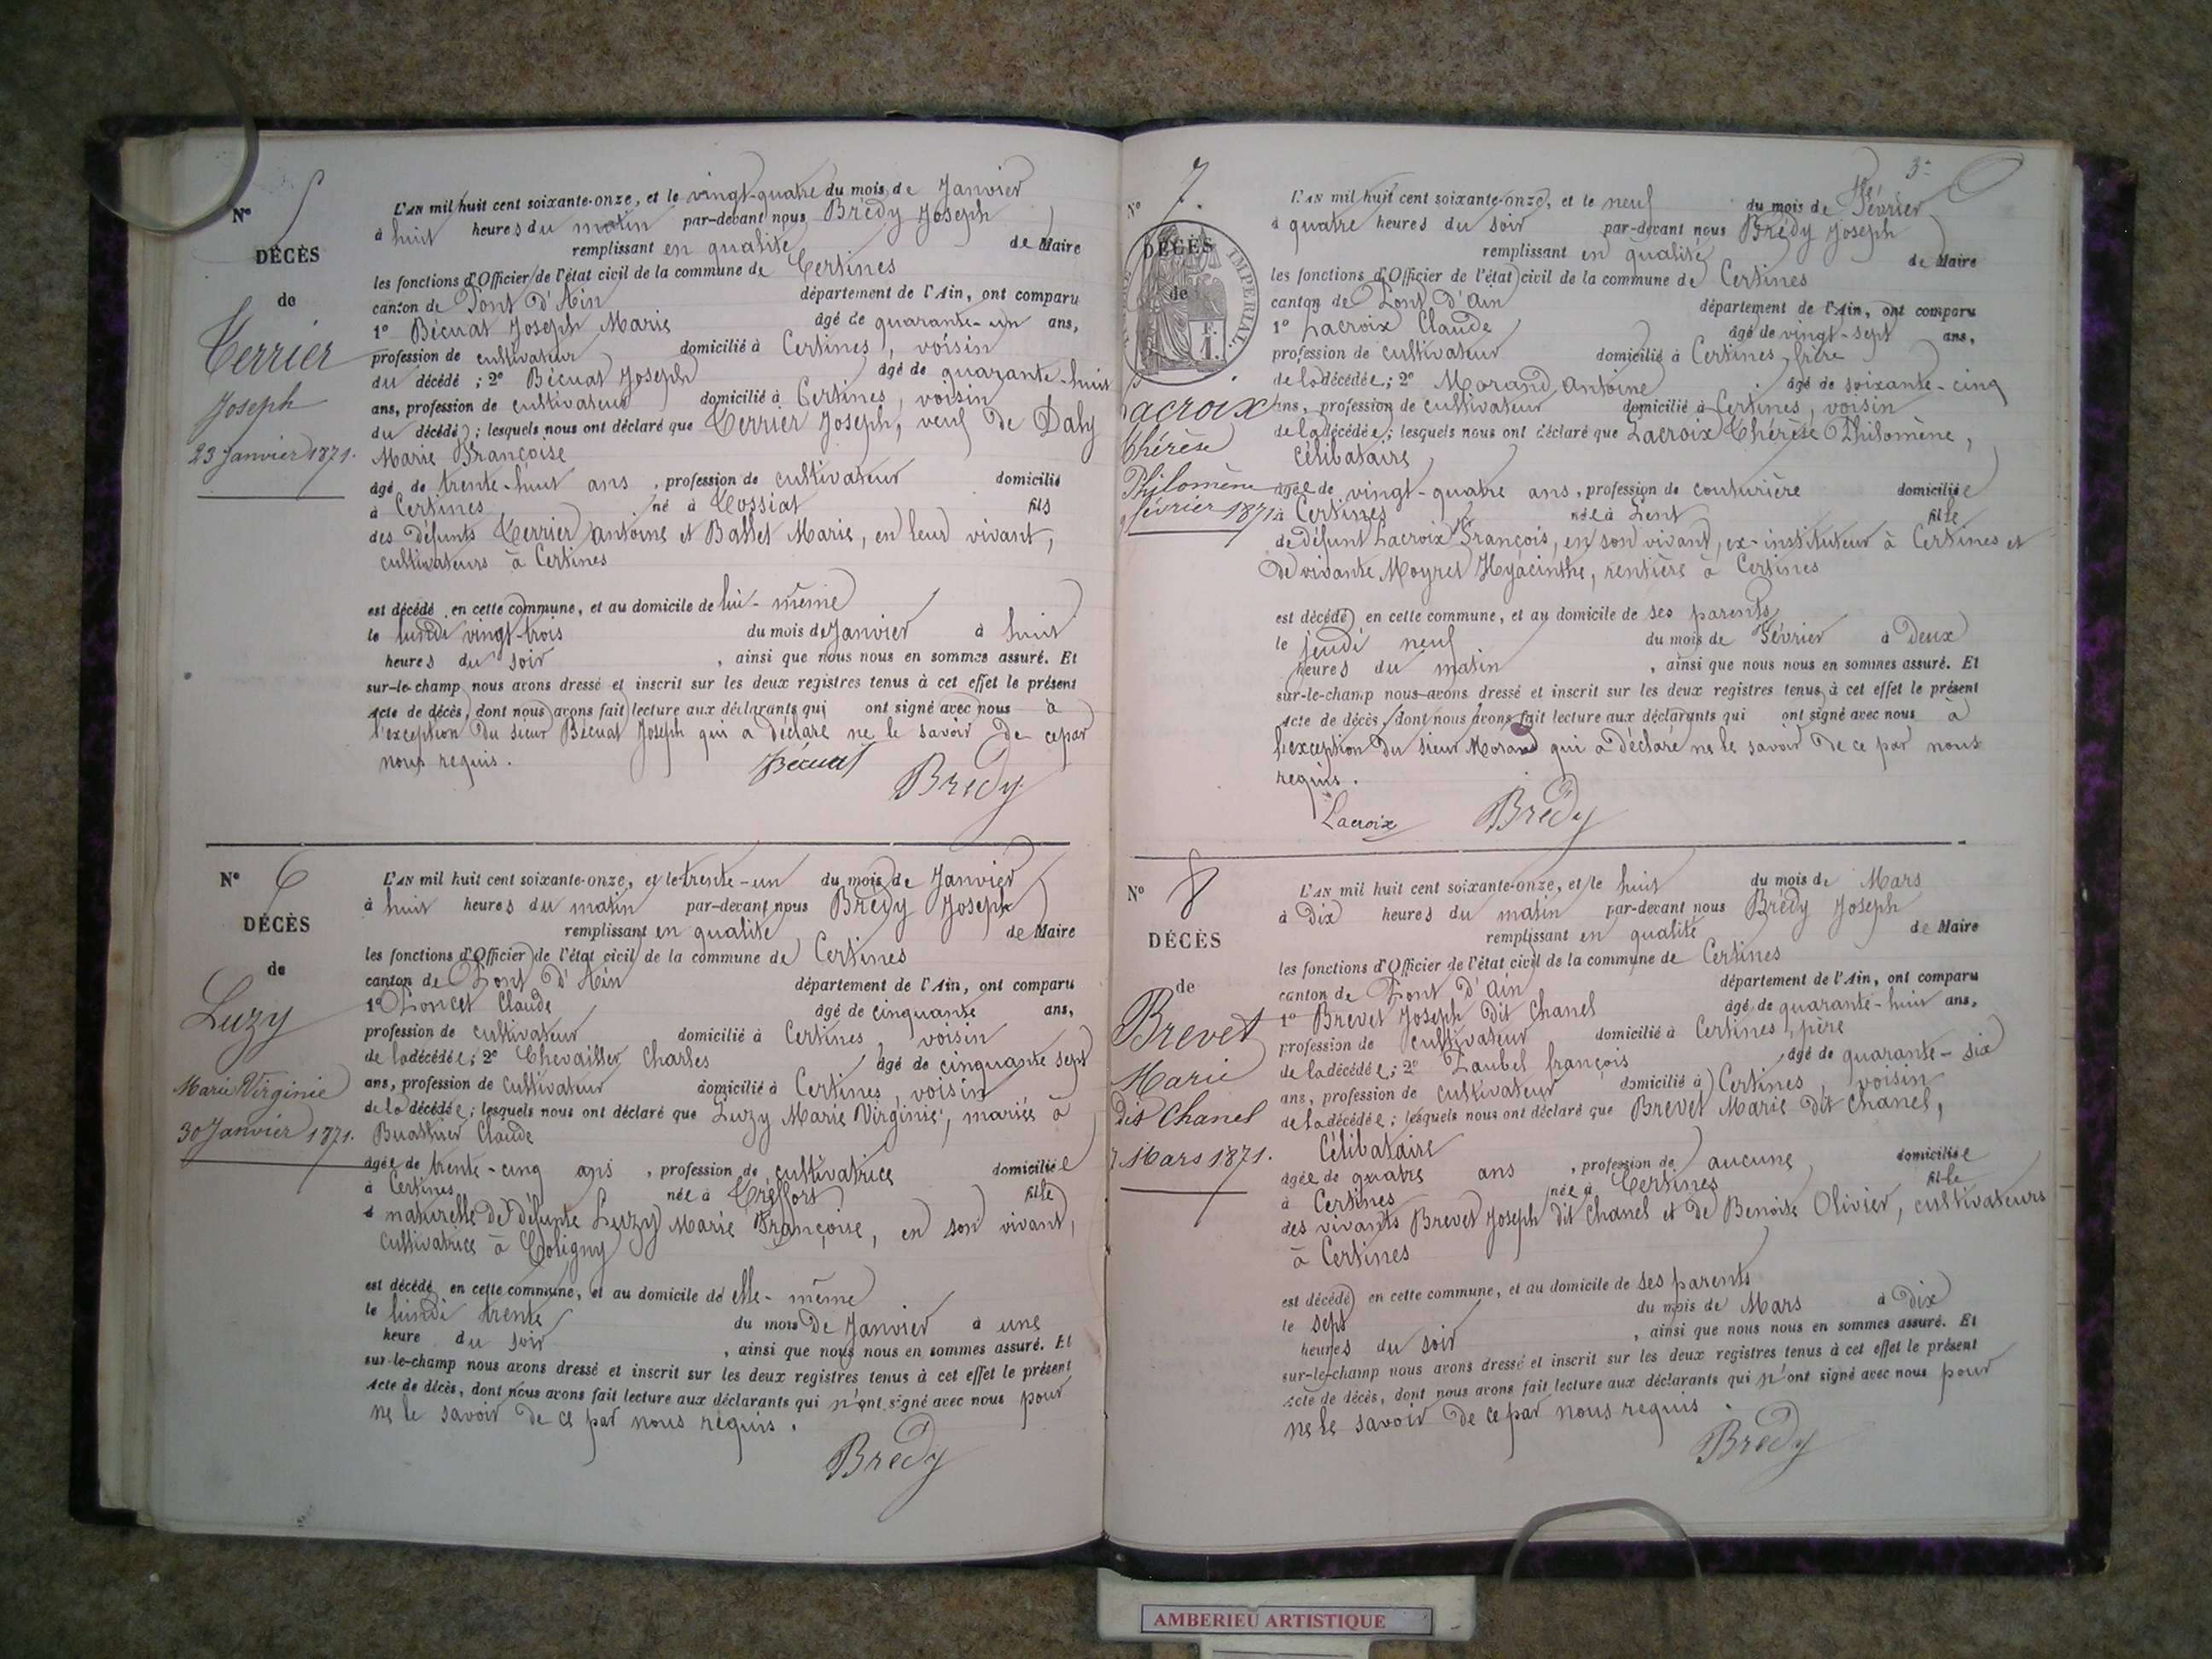 N° 5
DÉCÈS
de
Terrier
Joseph
23 Janvier 1871.
L'AN mil huit cent soixante-onze, et le vingt-quatre du mois de Janvier
à huit heures du matin par-devant nous Brédy Joseph
remplissant en qualité de Maire
les fonctions d'Officier de l'état civil de la commune de Certines
canton de Pont d'Ain département de l'Ain, ont comparu
1° Bécuat Joseph Marie âgé de quarante-un ans,
profession de cultivateur domicilié à Certines, voisin
du décédé ; 2° Bécuat Joseph âgé de quarante-huit
ans, profession de cultivateur domicilié à Certines, voisin
du décédé ; lesquels nous ont déclaré que Terrier Joseph, veuf de Daly
Marie Françoise
âgé de trente-huit ans, profession de cultivateur domicilié
à Certines né à Tossiat fils
des défunts Terrier antoine et Ballet Marie, en leur vivant,
cultivateurs à Certines
est décédé en cette commune, et au domicile de lui-même
le lundi vingt-trois du mois de Janvier à huit
heures du soir, ainsi que nous nous en sommes assuré. Et
sur-le-champ nous avons dressé et inscrit sur les deux registres tenus à cet effet le présent
acte de décès, dont nous avons fait lecture aux déclarants qui ont signé avec nous à
l'exception du sieur Bécuat Joseph qui a déclaré ne le savoir de ce par
nous requis.
Bécuat Brédy
N° 6
DÉCÈS
de
Luzy
Marie Virginie
30 Janvier 1871.
L'AN mil huit cent soixante-onze, et le trente-un du mois de Janvier
à huit heures du matin par-devant nous Brédy Joseph
remplissant en qualité de Maire
les fonctions d'Officier de l'état civil de la commune de Certines
canton de Pont d'Ain département de l'Ain, ont comparu
1° Poncet Claude âgé de cinquante ans,
profession de cultivateur domicilié à Certines, voisin
de la décédée ; 2° Chevailler Charles âgé de cinquante sept
ans, profession de cultivateur domicilié à Certines, voisin
de la décédée ; lesquels nous ont déclaré que Luzy Marie Virginie, mariée à
Buathier Claude
âgée de trente-cinq ans, profession de cultivatrice domiciliée
à Certines née à Treffort fille
naturelle de défunte Luzy Marie Françoise, en son vivant,
cultivatrice à Coligny
est décédé en cette commune, et au domicile de elle-même
le lundi trente du mois de Janvier à une
heure du soir, ainsi que nous nous en sommes assuré. Et
sur-le-champ nous avons dressé et inscrit sur les deux registres tenus à cet effet le présent
acte de décès, dont nous avons fait lecture aux déclarants qui n'ont signé avec nous pour
ne le savoir de ce par nous requis.
Brédy
3
N° 7.
DÉCÈS
de
IMPERIAL.
F.
1.
Lacroix
Thérèse
Philomène
février 1871
L'AN mil huit cent soixante-onze, et le neuf du mois de Février
à quatre heures du soir par-devant nous Brédy Joseph
remplissant en qualité de Maire
les fonctions d'Officier de l'état civil de la commune de Certines
canton de Pont d'ain département de l'Ain, ont comparu
1° Lacroix Claude âgé de vingt-sept ans,
profession de cultivateur domicilié à Certines, frère
de la décédée ; 2° Morand Antoine âgé de soixante-cinq
ans, profession de cultivateur domicilié à Certines, voisin
de la décédée ; lesquels nous ont déclaré que Lacroix Thérèse Philomène,
célibataire
âgée de vingt-quatre ans, profession de couturière domiciliée
à Certines née à Lent fille
de défunt Lacroix François, en son vivant, ex-instituteur à Certines et
de vivante Moyret Hyacinthe, rentière à Certines
est décédé en cette commune, et au domicile de ses parents
le jeudi neuf du mois de Février à deux
heures du matin, ainsi que nous nous en sommes assuré. Et
sur-le-champ nous avons dressé et inscrit sur les deux registres tenus à cet effet le présent
acte de décès, dont nous avons fait lecture aux déclarants qui ont signé avec nous à
l'exception du sieur Morand qui a déclaré ne le savoir de ce par nous
requis.
Lacroix Brédy
N° 8
DÉCÈS
de
Brevet
Marie
dit Chanel
7 Mars 1871.
L'AN mil huit cent soixante-onze, et le huit du mois de Mars
à dix heures du matin par-devant nous Brédy Joseph
remplissant en qualité de Maire
les fonctions d'Officier de l'état civil de la commune de Certines
canton de Pont d'ain département de l'Ain, ont comparu
1° Brevet Joseph dit Chanel âgé de quarante-huit ans,
profession de cultivateur domicilié à Certines, père
de la décédée ; 2° Laubel françois âgé de quarante-six
ans, profession de cultivateur domicilié à Certines, voisin
de la décédée ; lesquels nous ont déclaré que Brevet Marie dit Chanel,
Célibataire
âgée de quatre ans, profession de aucune domiciliée
à Certines née à Certines fille
des vivants Brevet Joseph dit Chanel et de Benoite Olivier, cultivateurs
à Certines
est décédé en cette commune, et au domicile de ses parents
le sept du mois de Mars à dix
heures du soir, ainsi que nous nous en sommes assuré. Et
sur-le-champ nous avons dressé et inscrit sur les deux registres tenus à cet effet le présent
acte de décès, dont nous avons fait lecture aux déclarants qui n'ont signé avec nous pour
ne le savoir de ce par nous requis.
Brédy
AMBERIEU ARTISTIQUE